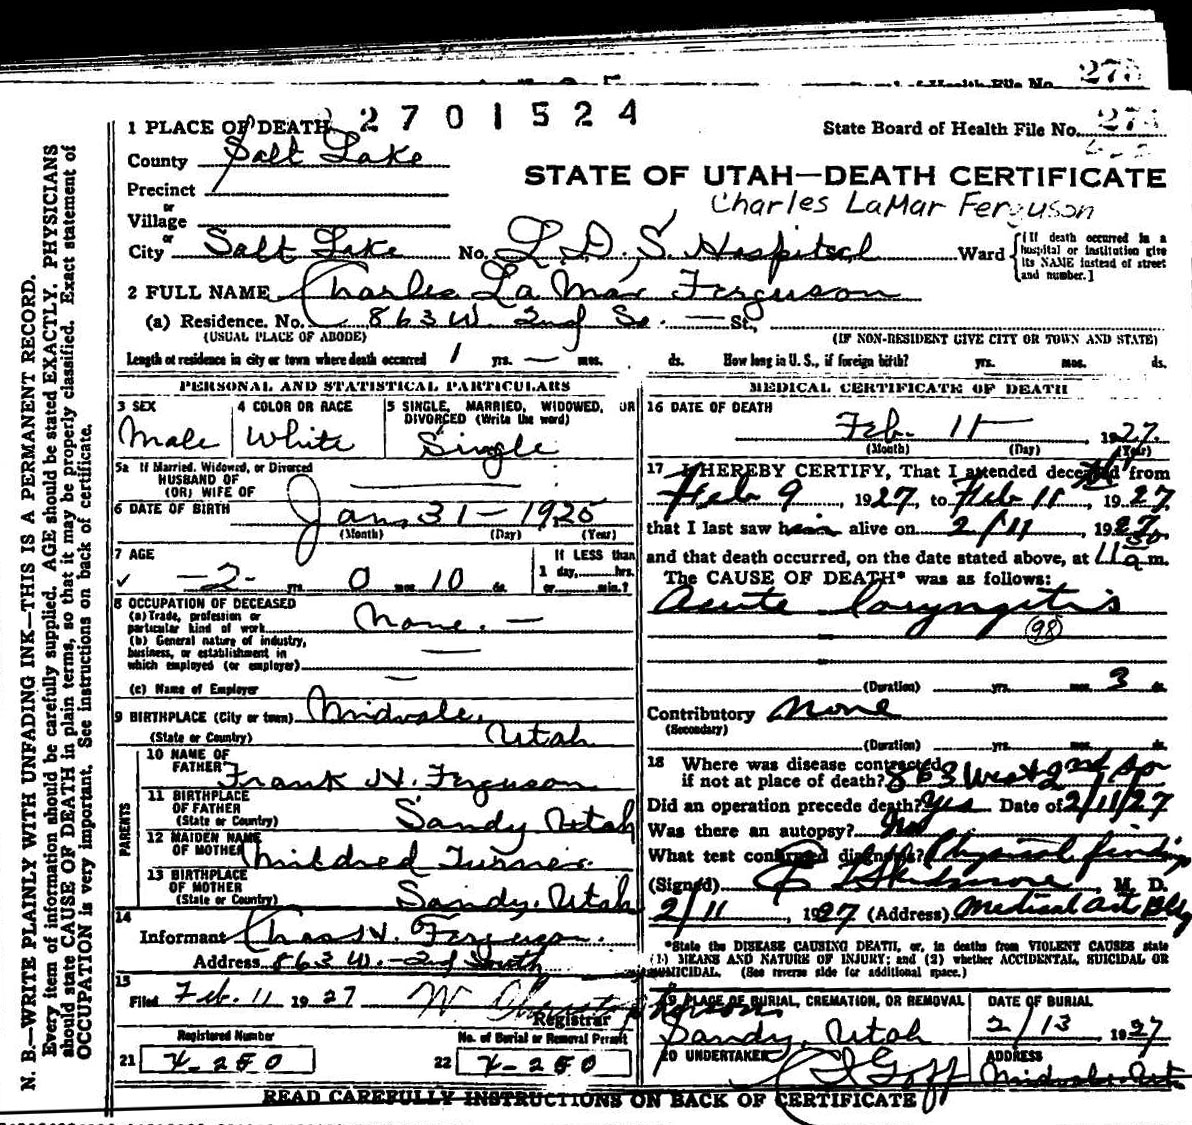 275
of Health File No.
2701524
1 PLACE OF DEATH
State Board of Health File No. 275
County Salt Lake
STATE OF UTAH—DEATH CERTIFICATE
Precinct
Charles LaMar Ferguson
or
Village
or
City Salt Lake No. L. D. S. Hospital Ward
[If death occurred in a hospital or institution give its NAME instead of street and number.]
2 FULL NAME Charles La Mar Ferguson
(a) Residence. No. 863 W. 2nd So. — St.,
(USUAL PLACE OF ABODE) (IF NON-RESIDENT GIVE CITY OR TOWN AND STATE)
Length of residence in city or town where death occurred 1 yrs. — mos. ds. How long in U. S., if foreign birth? yrs. mos. ds.
PERSONAL AND STATISTICAL PARTICULARS
3 SEX 4 COLOR OR RACE 5 SINGLE, MARRIED, WIDOWED, OR DIVORCED (Write the word)
Male White Single
5a If Married, Widowed, or Divorced
HUSBAND OF
(OR) WIFE OF
6 DATE OF BIRTH Jan 31 — 1925
(Month) (Day) (Year)
7 AGE If LESS than
1 day, hrs.
2 yrs. 0 mos. 10 ds. or min.?
8 OCCUPATION OF DECEASED
(a) Trade, profession or
particular kind of work None. —
(b) General nature of industry,
business, or establishment in
which employed (or employer)
(c) Name of Employer
9 BIRTHPLACE (City or town) Midvale,
(State or Country) Utah
PARENTS
10 NAME OF
FATHER Frank N. Ferguson
11 BIRTHPLACE
OF FATHER
(State or Country) Sandy, Utah
12 MAIDEN NAME
OF MOTHER Mildred Turner.
13 BIRTHPLACE
OF MOTHER
(State or Country) Sandy, Utah
14
Informant Chas N. Ferguson.
Address 863 W. — 2nd South
15
Filed Feb. 11 1927
Registrar
Registered Number No. of Burial or Removal Permit
21 X-250 22 X-250
MEDICAL CERTIFICATE OF DEATH
16 DATE OF DEATH
Feb. 11, 1927.
(Month) (Day) (Year)
17 I HEREBY CERTIFY, That I attended deceased from
Feb 9, 1927, to Feb 11, 1927
that I last saw him alive on 2/11, 1927,
and that death occurred, on the date stated above, at 11 50 a m.
The CAUSE OF DEATH* was as follows:
Acute laryngitis
98
(Duration) yrs. mos. 3 ds.
Contributory None
(Secondary)
(Duration) yrs. mos. ds.
18 Where was disease contracted
if not at place of death? 863 West 2nd So
Did an operation precede death? Yes Date of 2/11/27
Was there an autopsy? No
What test confirmed diagnosis? Physical findings
(Signed) Skidmore, M. D.
2/11, 1927 (Address) Medical Art Bldg
*State the DISEASE CAUSING DEATH, or, in deaths from VIOLENT CAUSES state
(1) MEANS AND NATURE OF INJURY; and (2) whether ACCIDENTAL, SUICIDAL OR
HOMICIDAL. (See reverse side for additional space.)
19 PLACE OF BURIAL, CREMATION, OR REMOVAL DATE OF BURIAL
Sandy, Utah 2/13 1927
20 UNDERTAKER ADDRESS
Goff Midvale, Ut.
READ CAREFULLY INSTRUCTIONS ON BACK OF CERTIFICATE
N. B.—WRITE PLAINLY WITH UNFADING INK—THIS IS A PERMANENT RECORD.
Every item of information should be carefully supplied. AGE should be stated EXACTLY. PHYSICIANS
should state CAUSE OF DEATH in plain terms, so that it may be properly classified. Exact statement of
OCCUPATION is very important. See instructions on back of certificate.